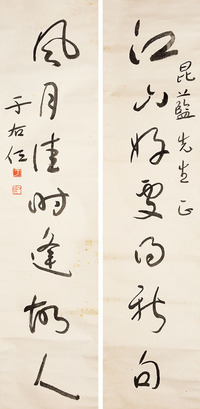 江山好處得新句
昆藍先生正
風月佳時逢故人
于右任